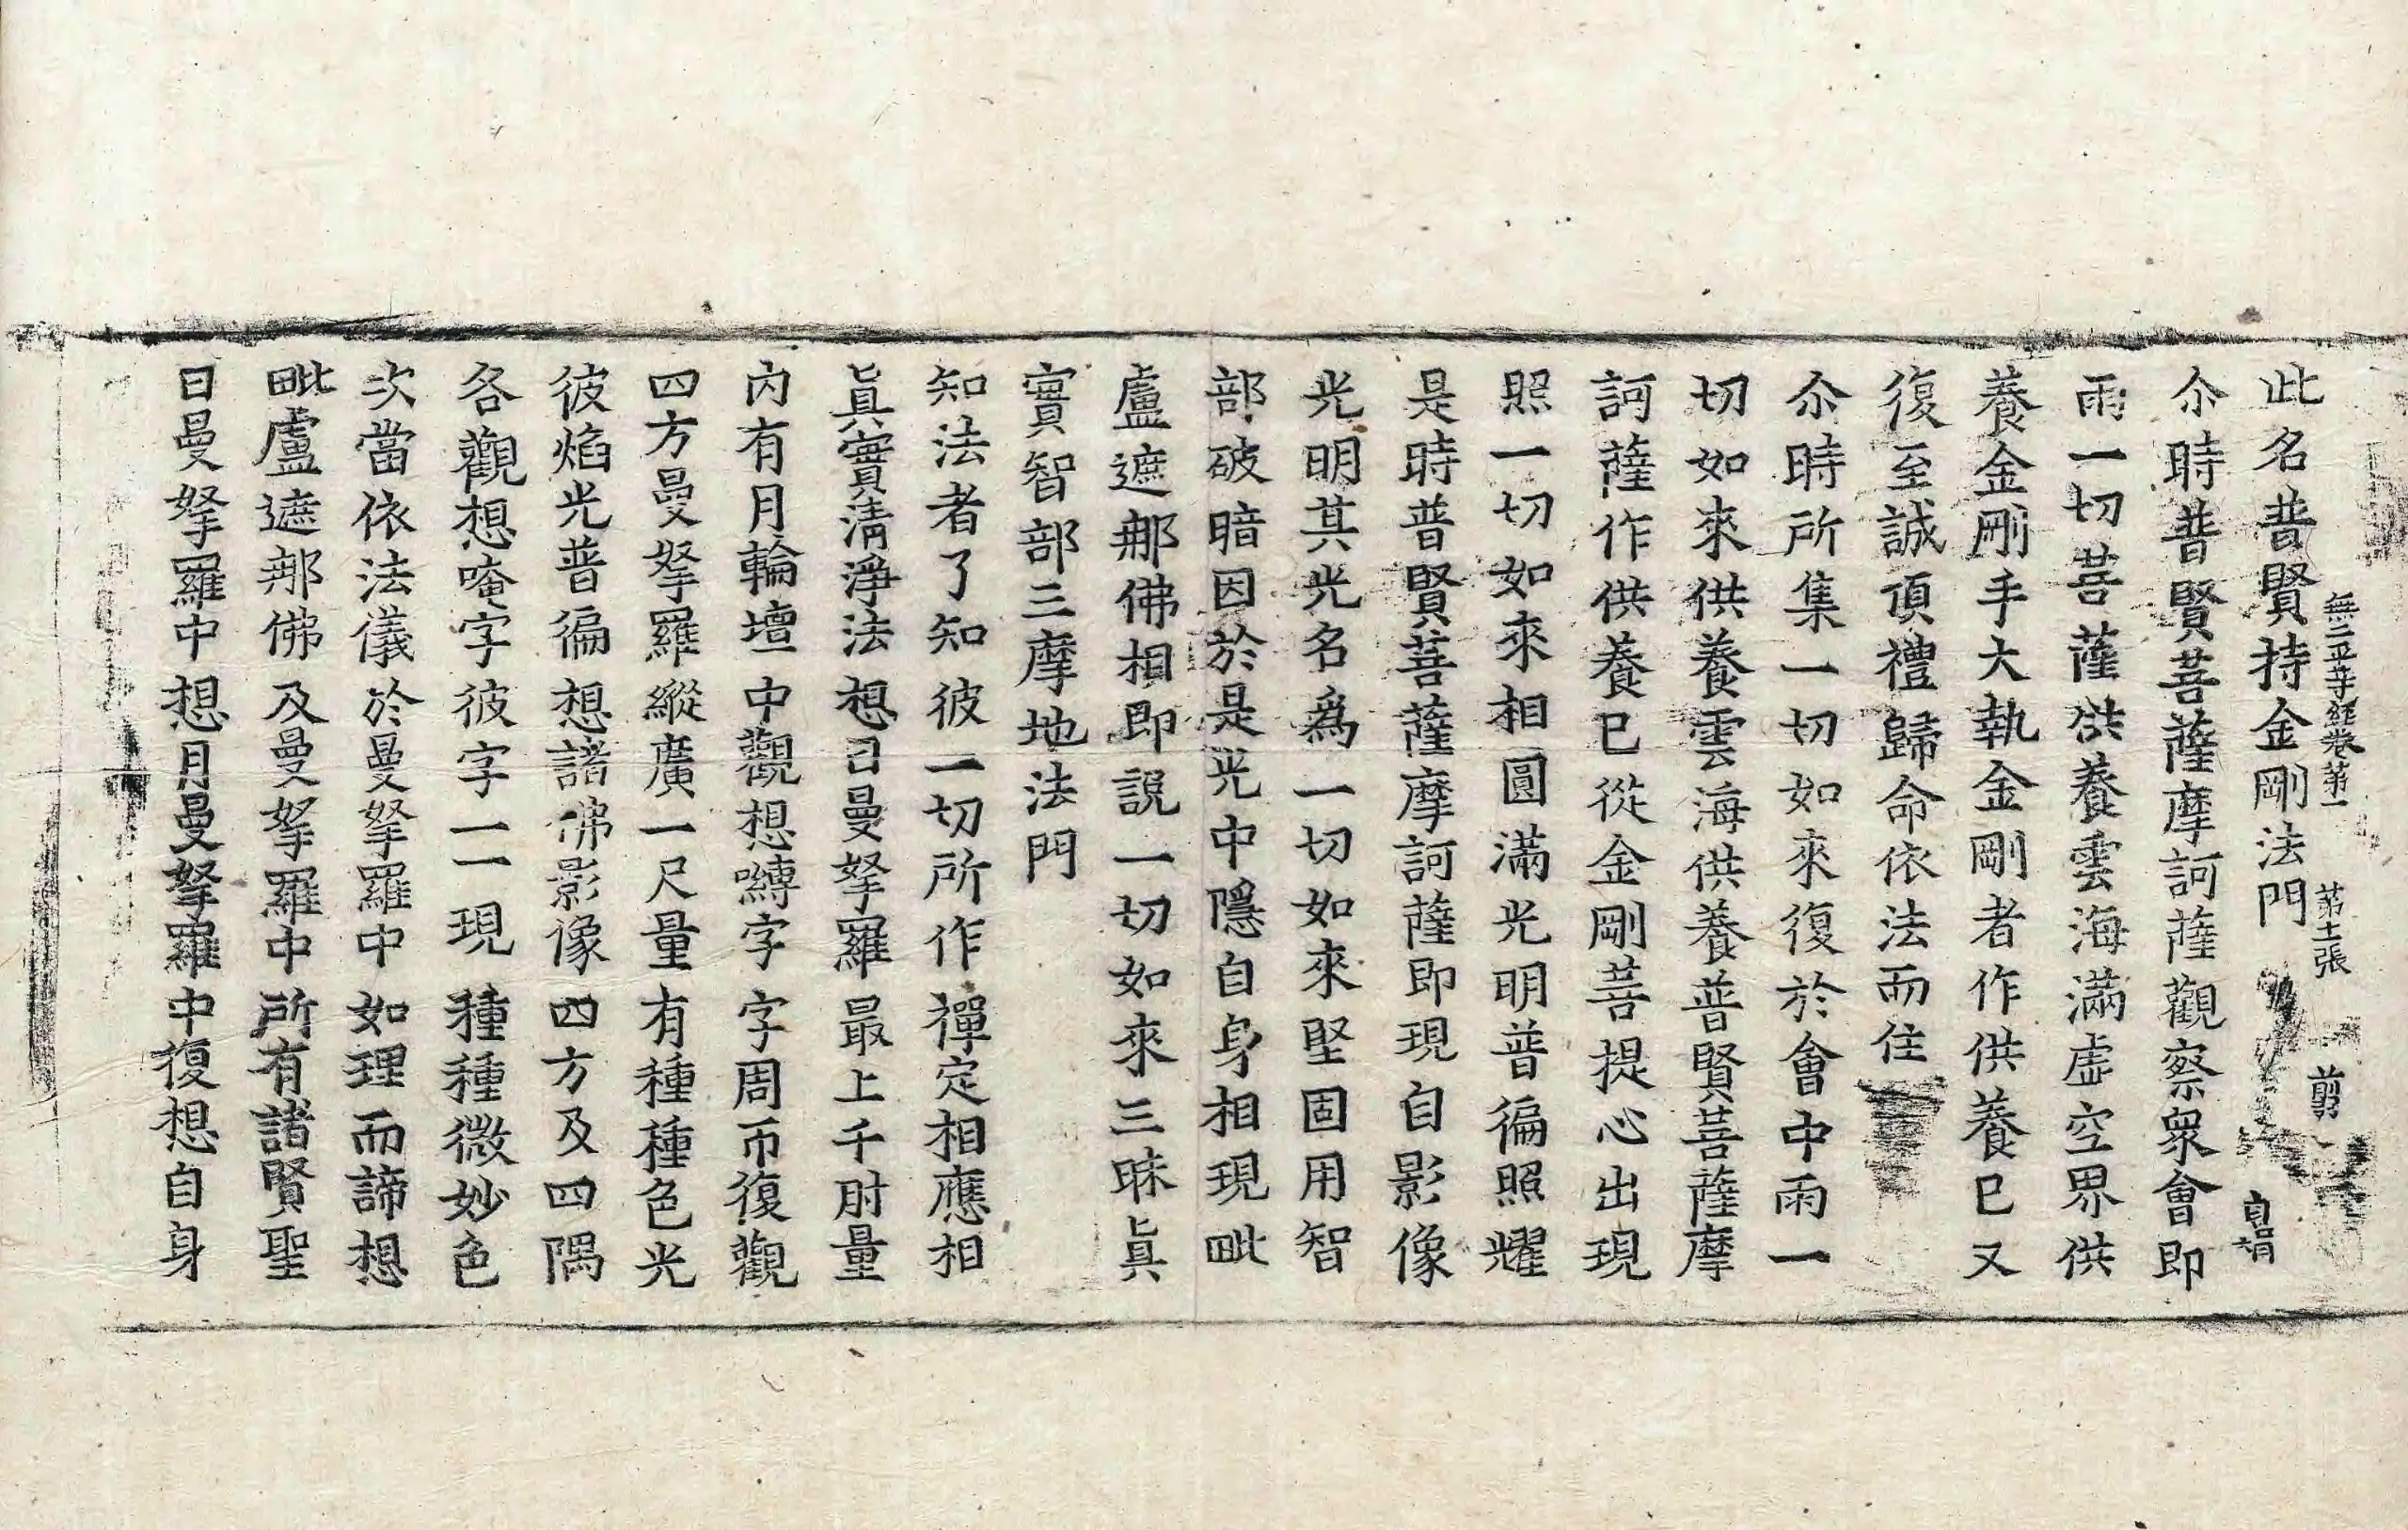 無二平等經卷第一 第十二張 剪
此名普賢持金剛法門
尒時普賢菩薩摩訶薩觀察衆會即
雨一切菩薩供養雲海滿虛空界供
養金剛手大執金剛者作供養已又
復至誠頂禮歸命依法而住
尒時所集一切如來復於會中雨一
切如來供養雲海供養普賢菩薩摩
訶薩作供養已從金剛菩提心出現
照一切如來相圓滿光明普徧照耀
是時普賢菩薩摩訶薩即現自影像
光明其光名爲一切如來堅固用智
部破暗因於是光中隱自身相現毗
盧遮那佛相即說一切如來三昧眞
實智部三摩地法門
知法者了知彼一切所作禪定相應相
眞實清淨法想日曼拏羅最上千肘量
內有月輪壇中觀想嚩字字周帀復觀
四方曼拏羅縱廣一尺量有種種色光
彼焰光普徧想諸佛影像四方及四隅
各觀想唵字彼字一一現種種微妙色
次當依法儀於曼拏羅中如理而諦想
毗盧遮那佛及曼拏羅中所有諸賢聖
日曼拏羅中想月曼拏羅中復想自身